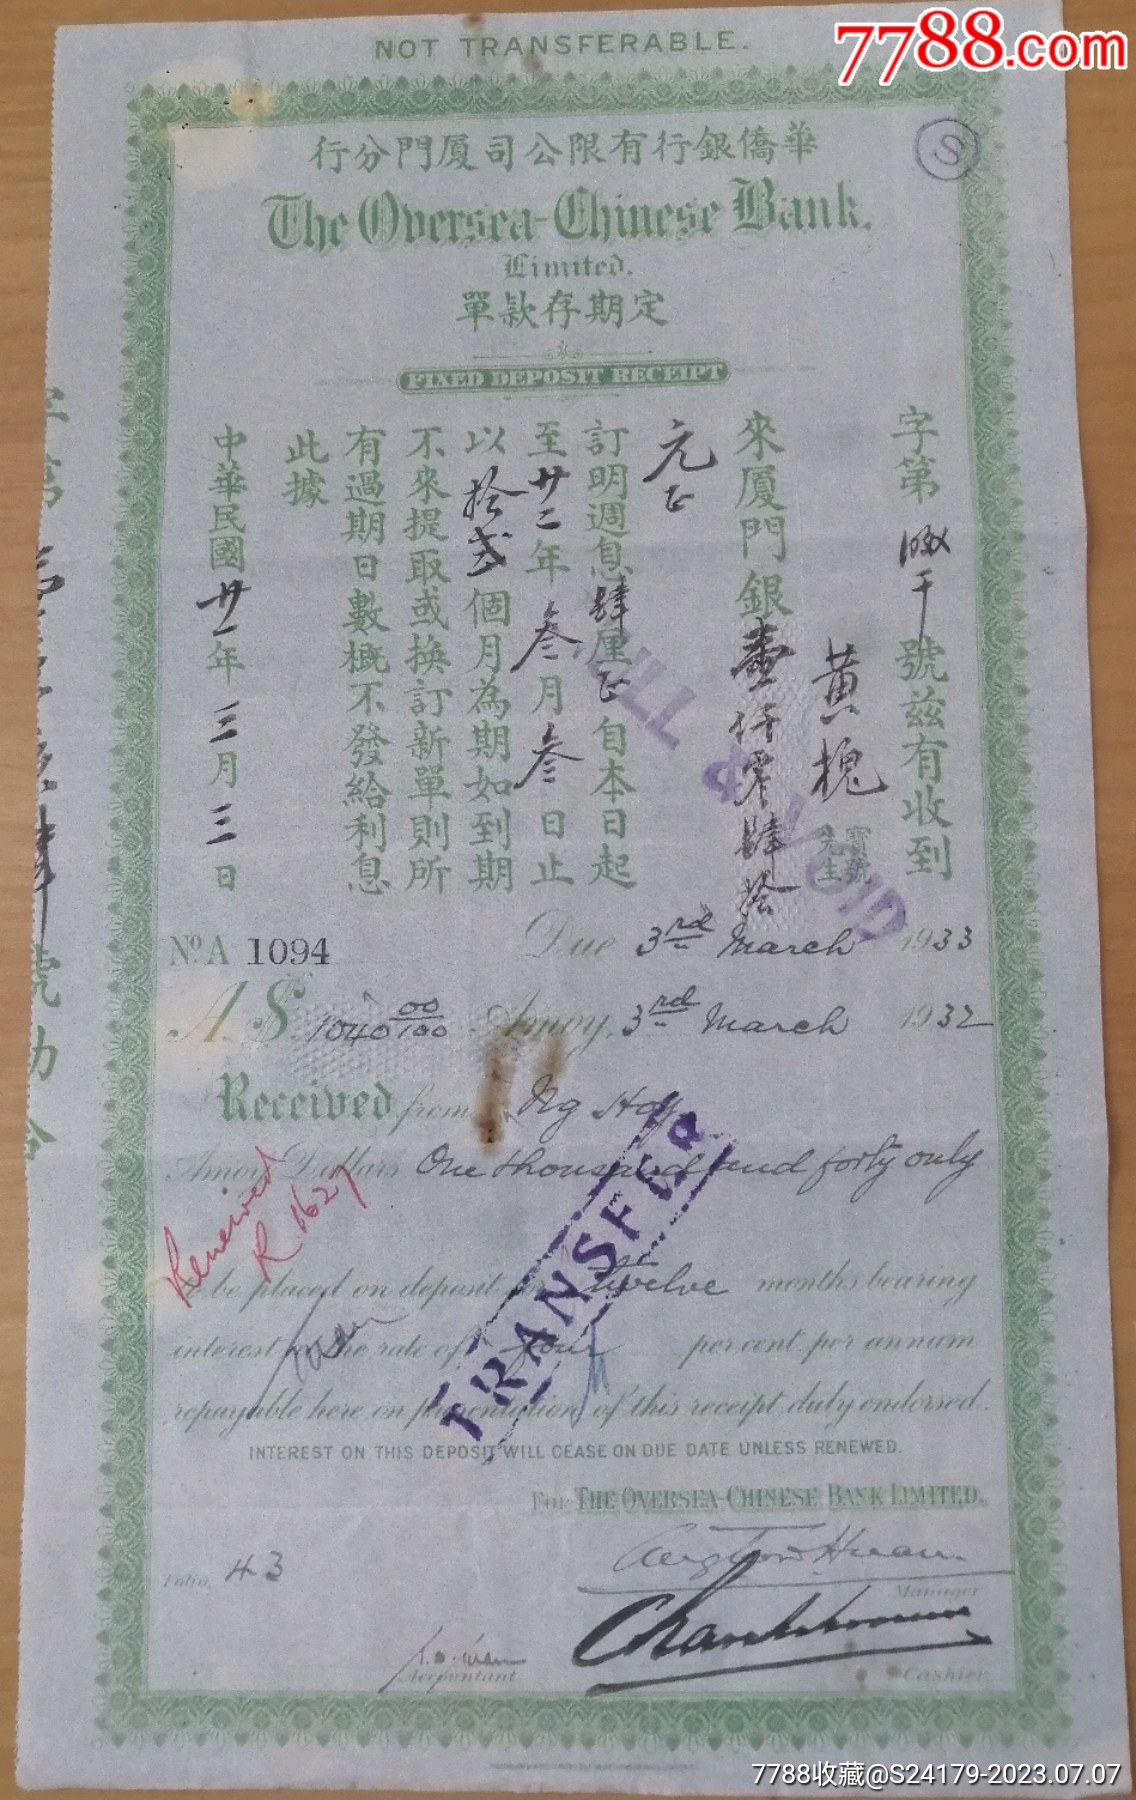 7788.com
NOT TRANSFERABLE.
S
華僑銀行有限公司廈門分行
The Oversea-Chinese Bank.
Limited.
定期存款單
FIXED DEPOSIT RECEIPT
字第 號茲有收到
黃槐 寶號 先生
來廈門銀壹仟零肆拾
元正
訂明週息肆厘正自本日起
至廿二年叁月叁日止
以拾弍個月為期如到期
不來提取或換訂新單則所
有過期日數概不發給利息
此據
中華民國廿一年三月三日
NULL & VOID
No A 1094
Due 3rd March 1933
A.$ 1040 00/100 Amoy, 3rd March 1932
Received from Ng Hoy
Amoy Dollars One thousand and forty only
Renewed
R 1627
TRANSFER
to be placed on deposit for twelve months bearing
interest at the rate of four per cent. per annum
repayable here on presentation of this receipt duly endorsed.
INTEREST ON THIS DEPOSIT WILL CEASE ON DUE DATE UNLESS RENEWED.
For THE OVERSEA-CHINESE BANK LIMITED.
Manager
Folio, 43
Accountant
Cashier
7788收藏@S24179-2023.07.07